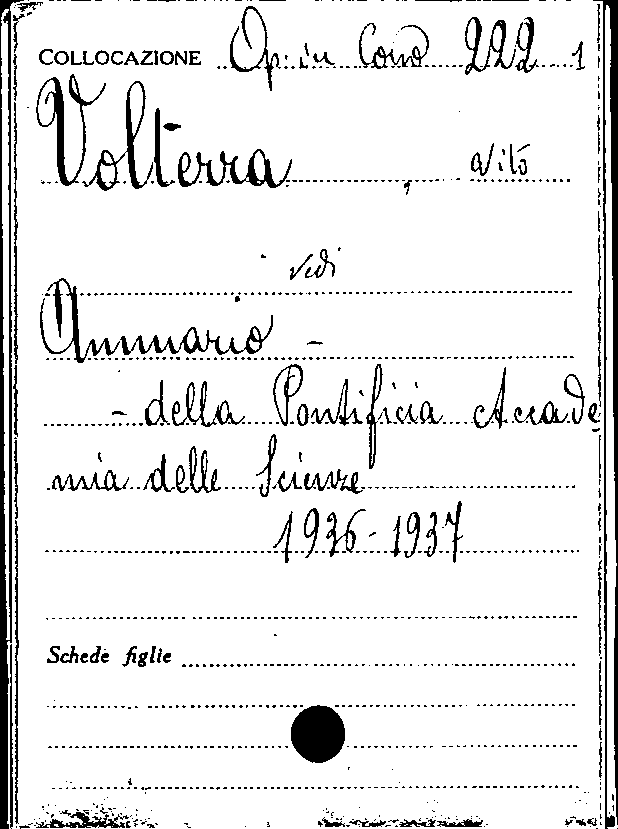 COLLOCAZIONE Op. in Cons 222 1
Volterra, Vito
vedi
Annuario -
- della Pontificia Accade
mia delle Scienze
1936-1937
Schede figlie